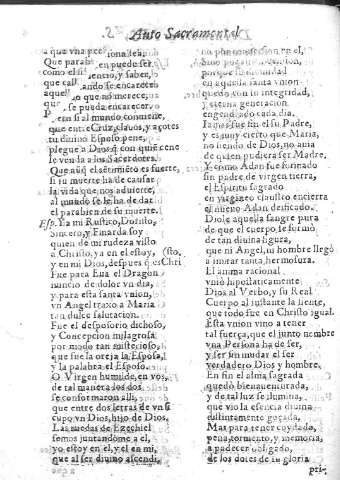 Auto Sacramental
a que vna per
Que para en puede ser
como el si encio, y saber,
que call ando se encarece
aquel o que no merece,
que se pueda encarecer.
P con si al mundo conuiene,
que entre Cruz, clauos, y açotes
tu diuino Esposo pene,
plegue a Dios que con quiē cene
le venda a los Sacerdotes.
Que aunq el aescimēto es fuerte,
si tu muerte ha de causar
la vida que nos aduierte,
al mundo se le ha de dar
el parabien de su muerte.
Esp. Ya mi Rustico, Deseoso,
Sincero, y Finarda soy
quien de mi rudeza visto
a Christo, ya en el estoy, (sto,
y en mi Dios, despues q es Chri
Fue para Eua el Dragon
nuncio de dolor vn dia,
y para esta santa vnion,
vn Angel traxo a Maria
tan dulce salutacion.
Fue el desposorio dichoso,
y Concepcion milagrosa
por modo tan misterioso,
que fue la oreja la Esposa,
y la palabra el Esposo.
O Virgen humilde, en vos,
de tal manera los dos
se conformaron alli,
que entre dos letras de vn si
cupo vn Dios, hijo de Dios.
Las ruedas de Ezechiel
somos juntandome a el,
yo estoy en el, y el en mi,
que al ser diuino ascendi,
no por confession en el,
Sino por
porque la humanidad
en aquella santa vnion
quedò con su integridad,
y eterna generacion
engendrado cada dia.
Iamo fue sin el su Padre,
y es muy cierto que Maria,
no siendo de Dios, no auia
de quien pudiera ser Madre.
Y como Adan fue formado
sin padre de virgen tierra,
el Espiritu sagrado
en virgineo claustro encierra
el nueuo Adan deificado.
Diole aquella sangre pura
de que el cuerpo se formò
de tan diuina figura,
que ni Angel, ni hombre llegò
a imitar tanta hermosura.
El anima racional
vniò hipostaticamente
Dios al Verbo, y su Real
Cuerpo al instante la siente,
que todo fue en Christo igual.
Esta vnion vino a tener
tal fuerça, que el junto nombre
vna Persona ha de ser,
y ser sin mudar el ser
verdadero Dios y hombre.
En fin el alma sagrada
quedò bienauenturada,
y de tal luz se ilumina,
que vio la esencia diuina
distintamente gozada.
Mas para tener coydada,
pena, tormento, y memoria,
a padecer obligado,
de los dotes de su gloria
pri-